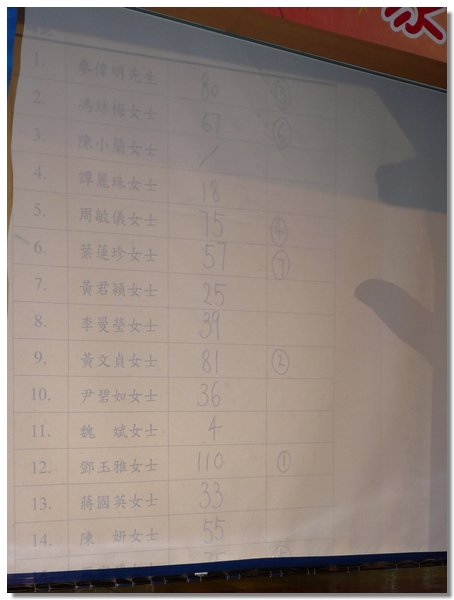 1. 麥偉明先生 80 ③
2. 馮結梅女士 67 ⑥
3. 陳小蘭女士 /
4. 譚麗珠女士 18
5. 周敏儀女士 75 ④
6. 葉蓮珍女士 57 ⑦
7. 黃君穎女士 25
8. 李雯瑩女士 39
9. 黃文貞女士 81 ②
10. 尹碧如女士 36
11. 魏 斌女士 4
12. 鄧玉雅女士 110 ①
13. 蔣國英女士 33
14. 陳 妍女士 55